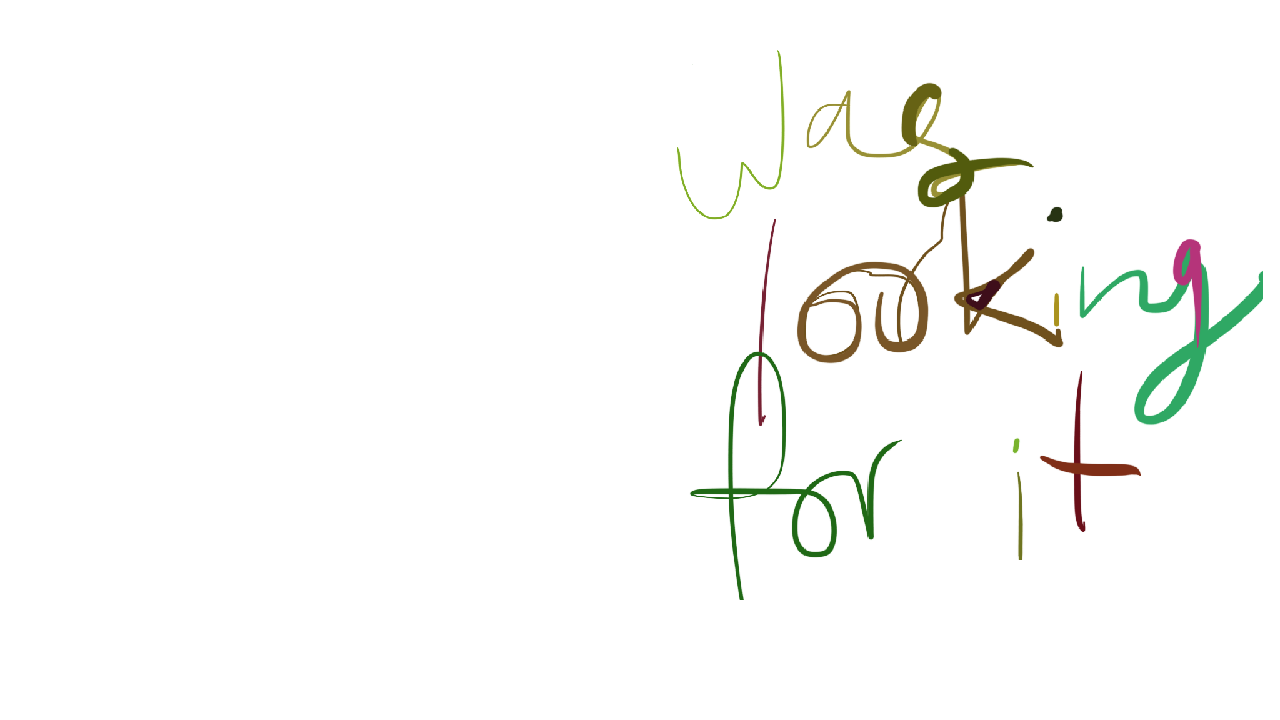 Was
looking
for it